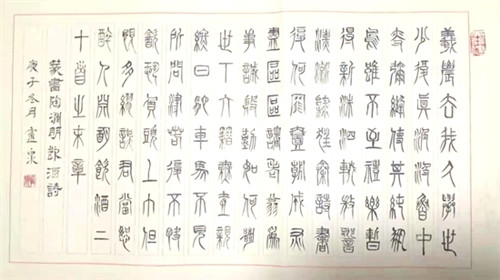 羲農去我久舉世
少復真汲汲魯中
叟彌縫使其純鳳
鳥雖不至禮樂暫
得新洙泗輟微響
漂流逮狂秦詩書
復何罪一朝成灰
塵區區諸老翁為
事誠殷勤如何絕
世下六籍無一親
終日馳車走不見
所問津若復不快
飲空負頭上巾但
恨多謬誤君當恕
醉人飲酒二
十首之末章
篆書陶淵明飲酒詩
庚子冬月